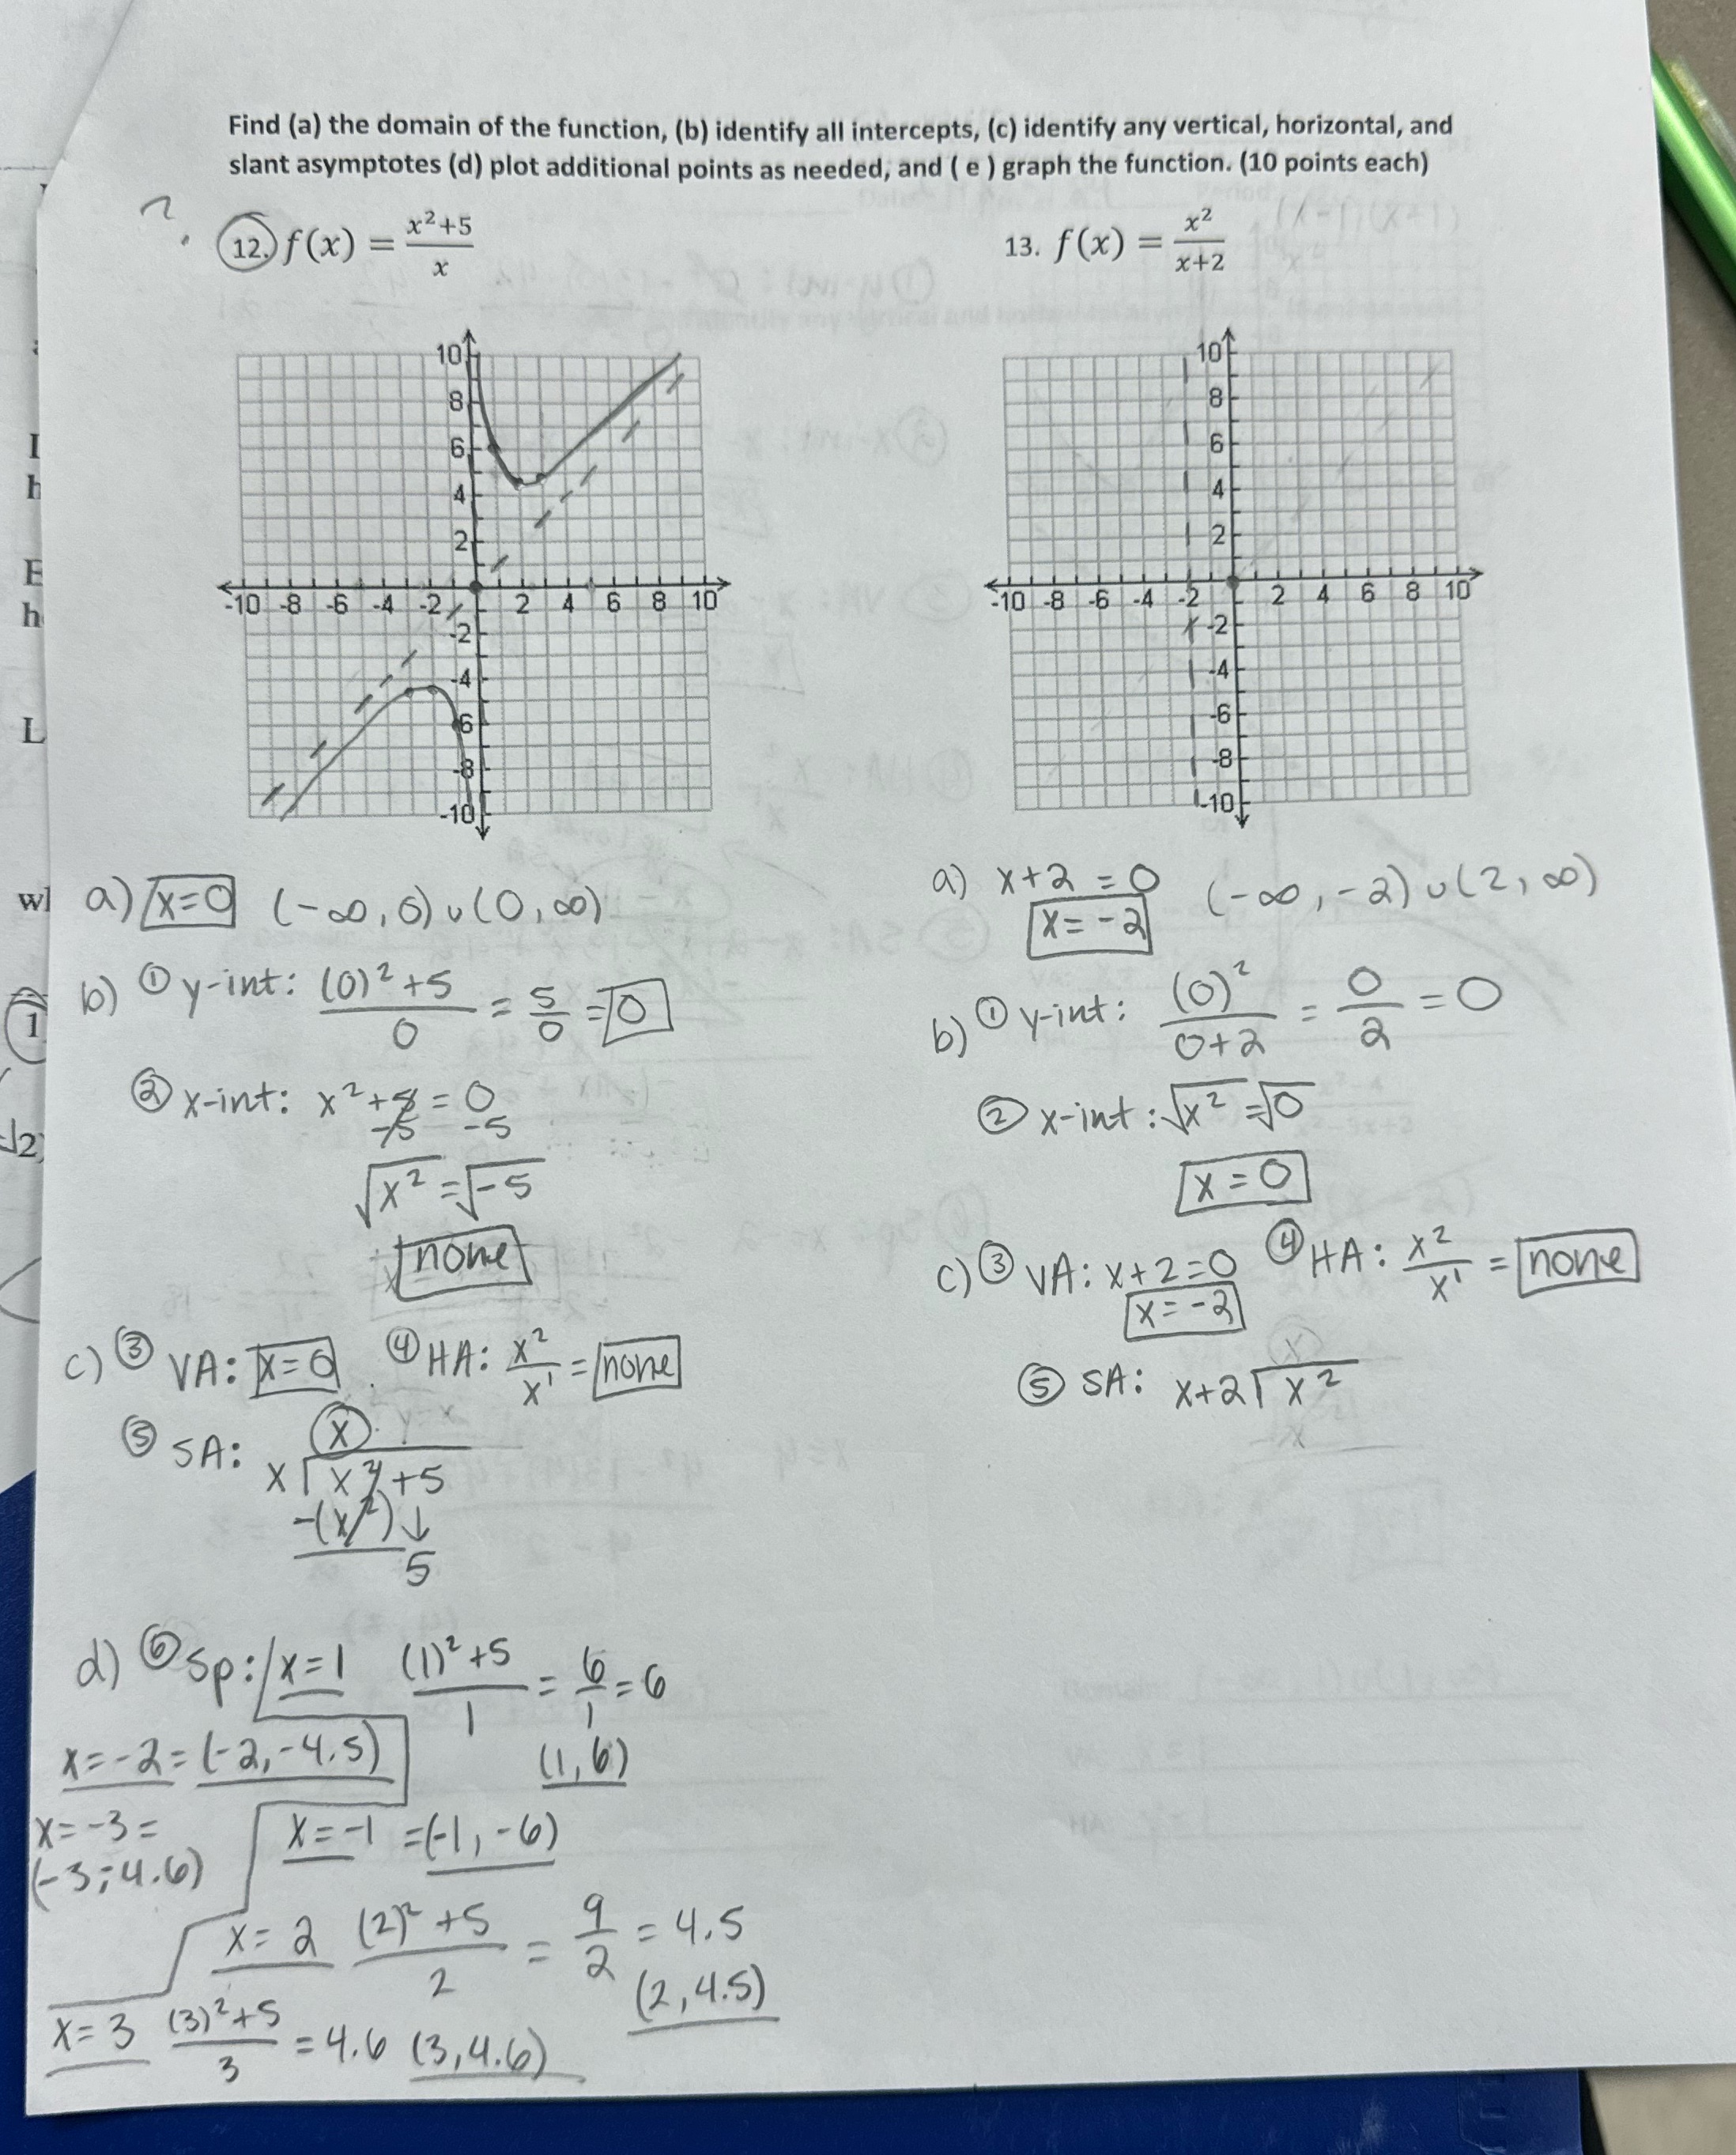 Find (a) the domain of the function, (b) identify all intercepts, (c) identify any vertical, horizontal, and
slant asymptotes (d) plot additional points as needed, and ( e ) graph the function. (10 points each)
?
12. f(x) = (x²+5)/x
10
8
6
4
2
-10 -8 -6 -4 -2 2 4 6 8 10
-2
-4
-6
-8
-10
a) x=0 (-∞, 0) ∪ (0, ∞)
b) ① y-int: ((0)²+5)/0 = 5/0 = 0
② x-int: x²+5 = 0
-5 -5
√x² = √-5
none
c) ③ VA: x=0 ④ HA: x²/x¹ = none
⑤ SA: x
x x²+5
-(x²) ↓
5
d) ⑥ Sp: x=1 ((1)²+5)/1 = 6/1 = 6
(1,6)
x=-2 = (-2,-4.5)
x=-3 =
(-3,-4.6)
x=-1 = (-1,-6)
x=2 ((2)²+5)/2 = 9/2 = 4.5
(2,4.5)
x=3 ((3)²+5)/3 = 4.6 (3,4.6)
13. f(x) = x²/(x+2)
10
8
6
4
2
-10 -8 -6 -4 -2 2 4 6 8 10
-2
-4
-6
-8
-10
a) x+2 = 0 (-∞, -2) ∪ (2, ∞)
x=-2
b) ① y-int: (0)²/(0+2) = 0/2 = 0
② x-int: √x² = √0
x=0
c) ③ VA: x+2=0 ④ HA: x²/x¹ = none
x=-2
⑤ SA: x+2 x²